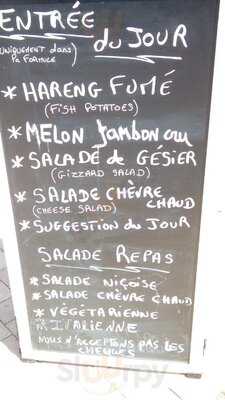 ENTRÉE
(UNIQUEMENT dans
la FORMULE)
du JOUR
* HARENG FUMÉ
(FISH POTATOES)
* MELON Jambon cru
* SALADE de GÉSIER
(GIZZARD SALAD)
* SALADE CHÈVRE
(CHEESE SALAD) CHAUD
* SUGGESTION du JOUR
SALADE REPAS
* SALADE NIÇOISE
* SALADE CHÈVRE CHAUD
* VÉGÉTARIENNE
* ITALIENNE
NOUS N'ACCEPTONS PAS LES
CHEQUES
Sluurpy